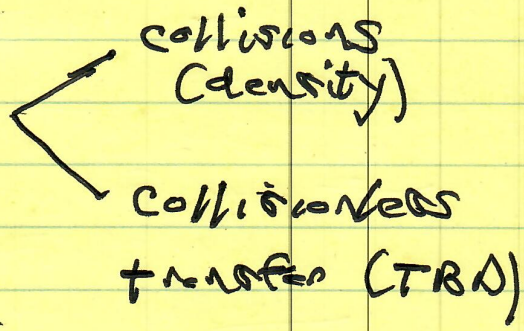 collisions
(density)
collisionless
transfer (TBD)